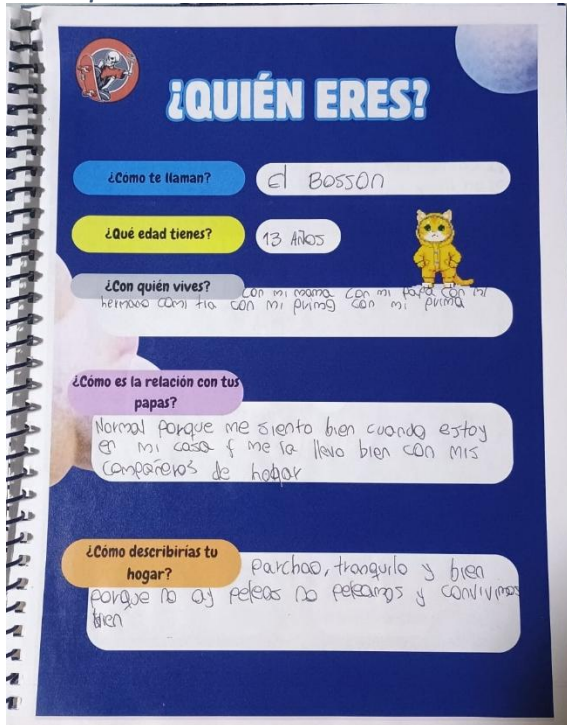 ¿QUIÉN ERES?
¿Cómo te llaman?
El BOSSOn
¿Qué edad tienes?
13 Años
¿Con quién vives?
con mi mama con mi papá con mi
hermano comi tia con mi primo con mi prima
¿Cómo es la relación con tus
papas?
Normal Porque me siento bien cuando estoy
en mi casa y me la llevo bien con mis
compañeros de hogar
¿Cómo describirías tu
hogar?
parchao, tranquilo y bien
porque no ay peleas no peleamos y convivimos
bien